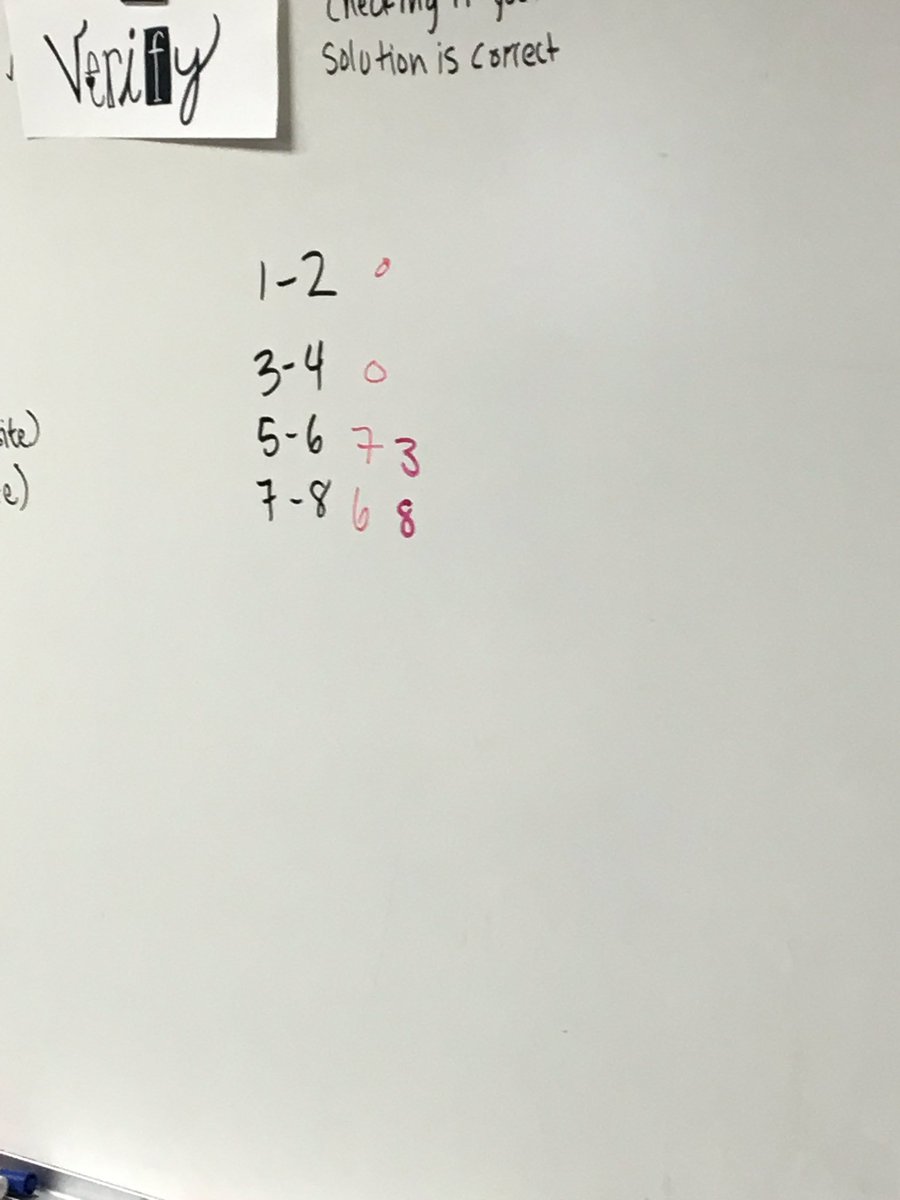 Verify
Checking if you
Solution is correct
1-2 0
3-4 0
ite)
5-6 7 3
e)
7-8 6 8